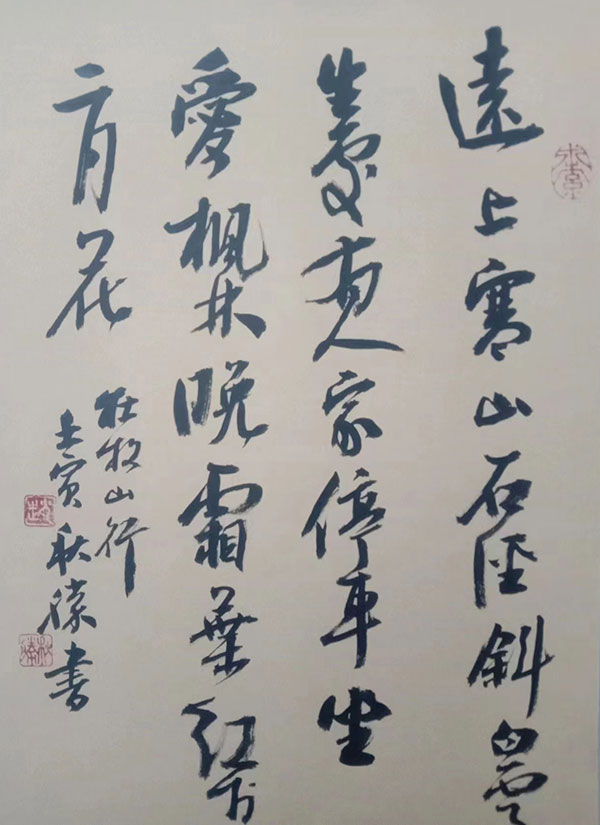 遠上寒山石徑斜白雲
生處有人家停車坐
愛楓林晚霜葉紅於
二月花
杜牧山行
壬寅秋書